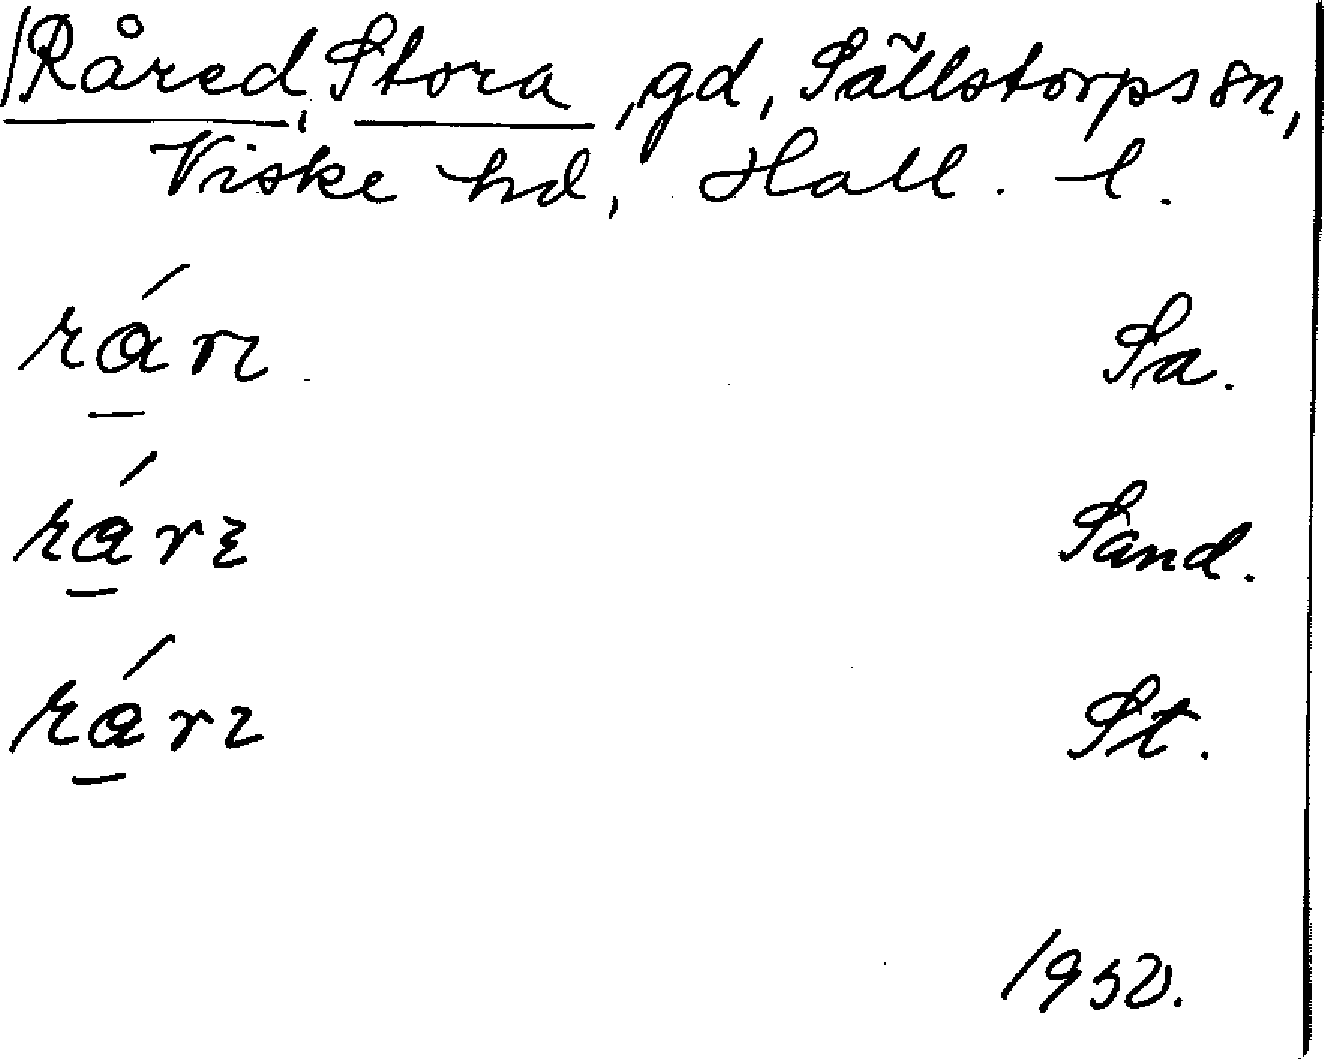 Råred, Stora, gd, Sällstorps sn,
Viske hd, Hall. l.
rá̱rɩ Sa.
rá̱rɛ Sand.
rá̱rɩ St.
1950.